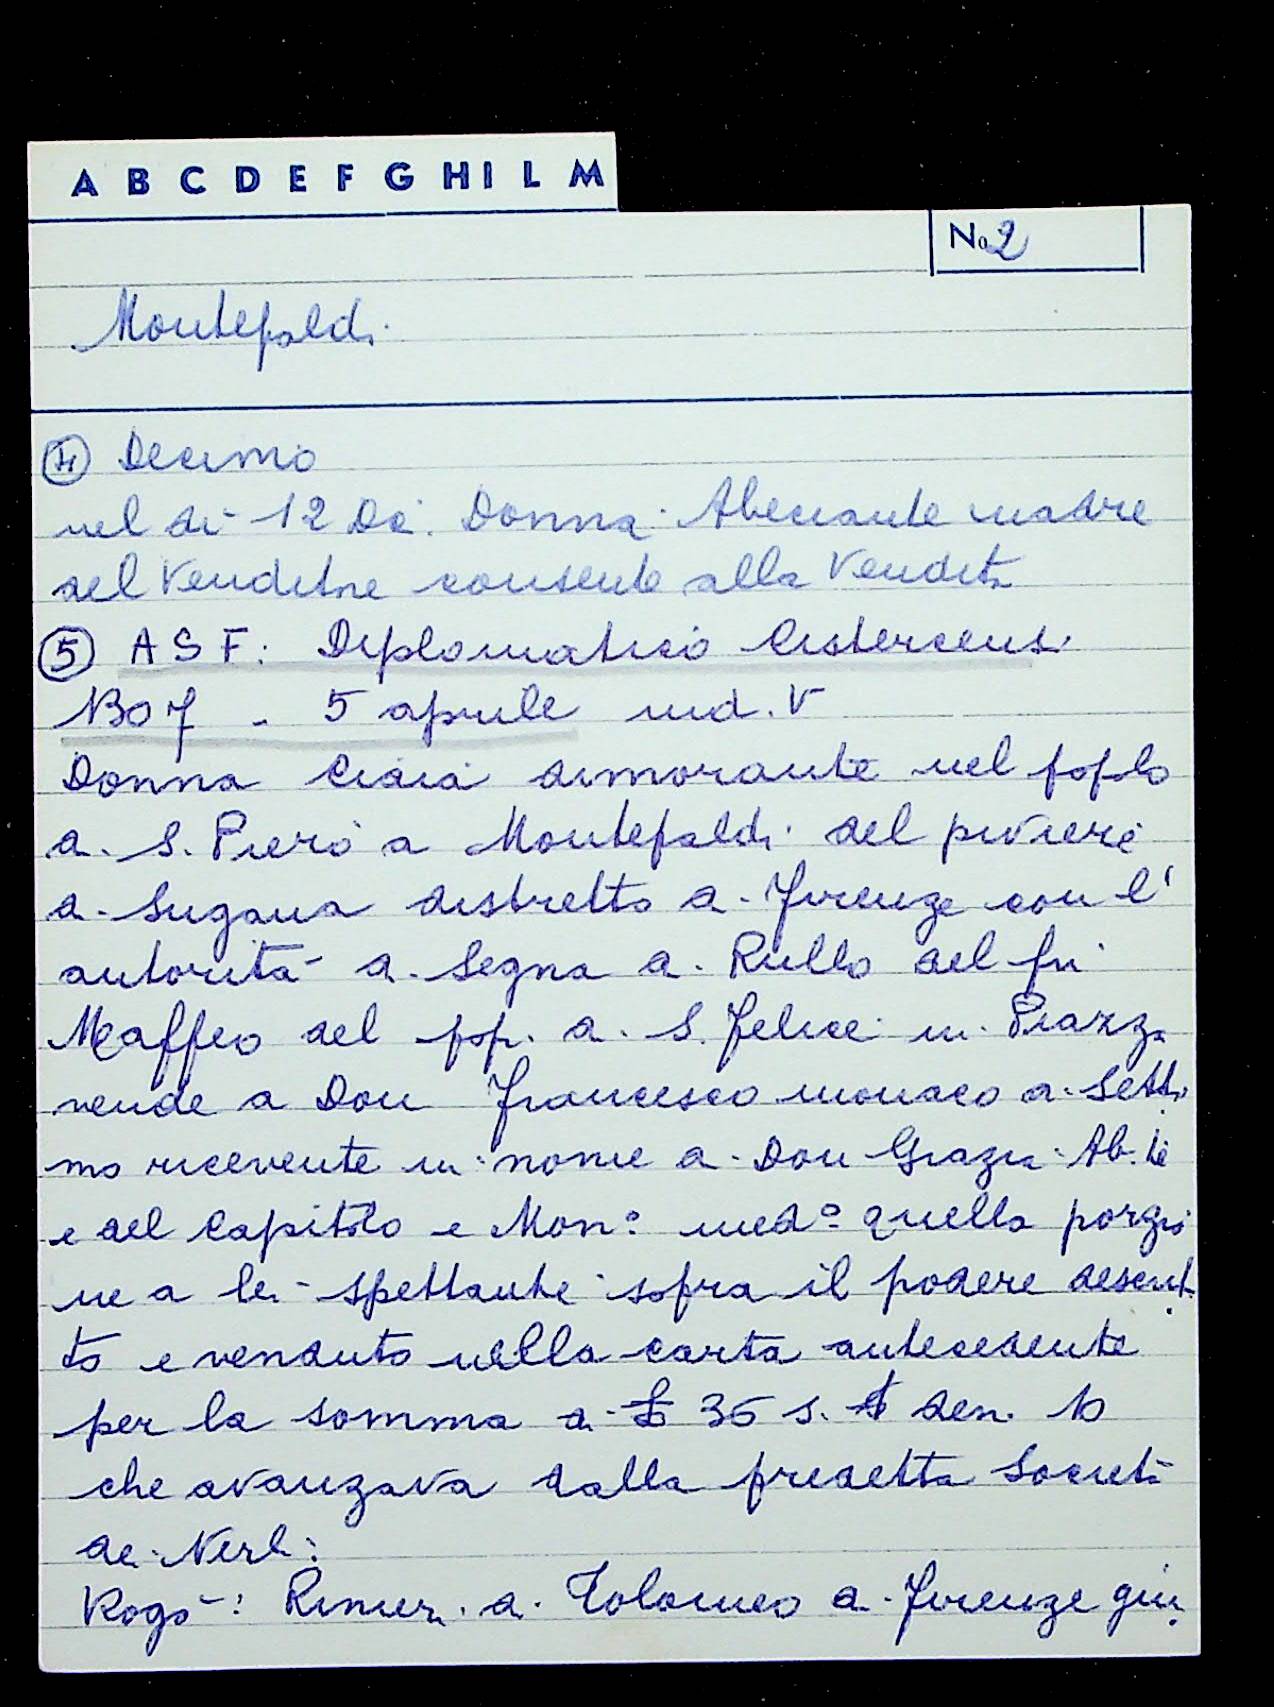 A B C D E F G H I L M
No 2
Montefoldi
④ Decimo
nel dì 12 Dc. Donna Abeciante madre
del Venditore consente alla Vendita
⑤ ASF: Diplomatico Cistercensi
1307 - 5 aprile ind. V
Donna Ciaia dimorante nel popolo
di S. Piero a Montefoldi del piviere
di Sugana distretto di Firenze con l'
autorità di Segna di Rullo del fu
Maffeo del pop. di S. Felice in Piazza
vende a Don Francesco monaco di Setti
mo ricevente in nome di Don Grazia Ab.te
e del Capitolo e Mon.o med.o quella porzio
ne a lei spettante sopra il podere descrit
to e venduto nella carta antecedente
per la somma di £ 36 s. den. 10
che avanzava dalla predetta Società
dei Nerli:
Rogò: Rinieri di Tolomeo di Firenze giu.